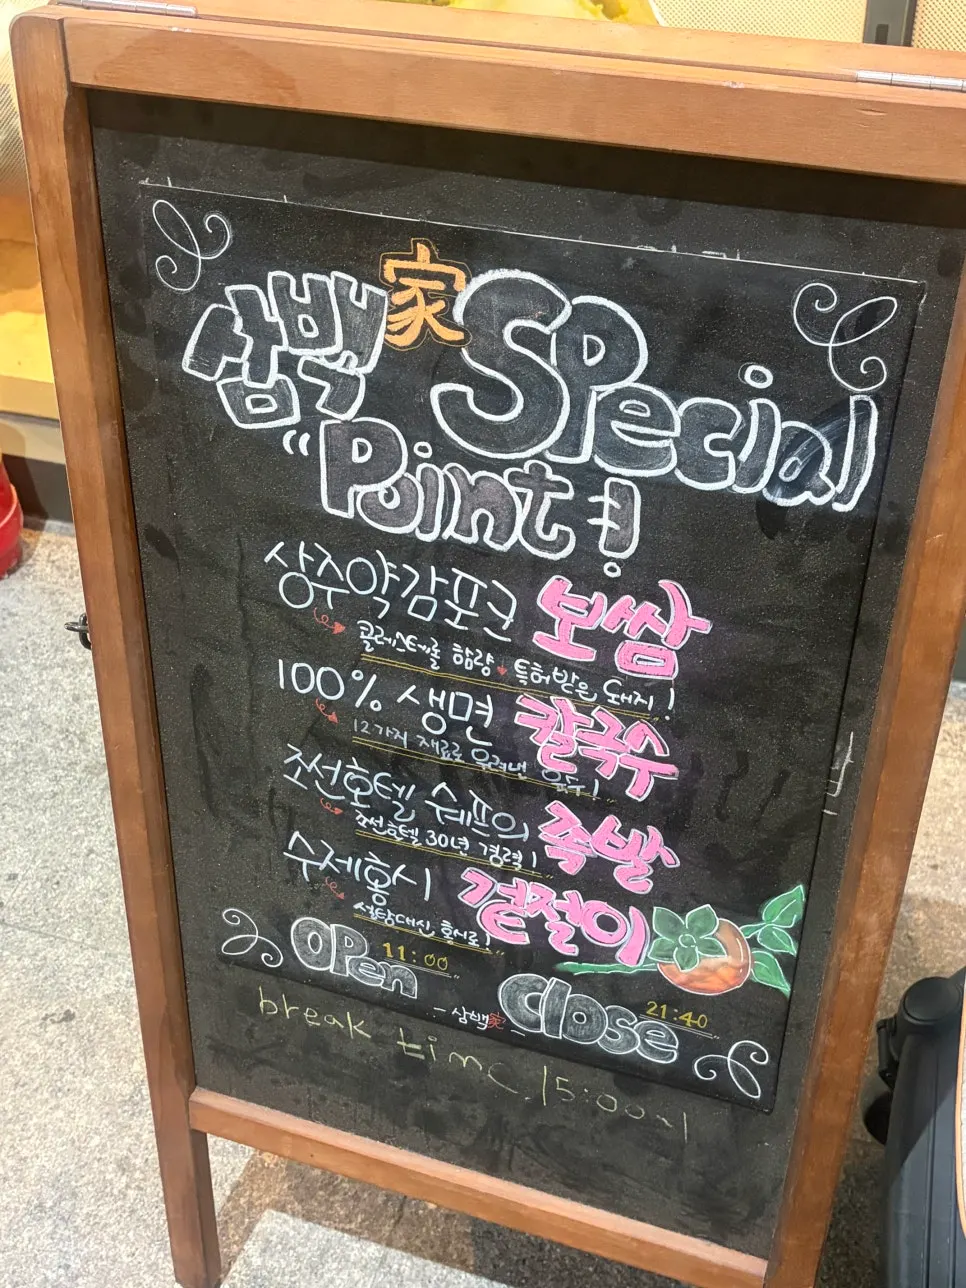 삼백家 Special
"Point!
상주약감포크 보쌈
콜레스테롤 함량↓ 특허받은 돼지!
100% 생면 칼국수
12가지 재료로 우려낸 육수!
조선호텔 쉐프의 족발
조선호텔 30년 경력!
수제홍시 겉절이
설탕대신 홍시로!
OPen 11:00
Close 21:40
- 삼백家 -
break time 15:00~1